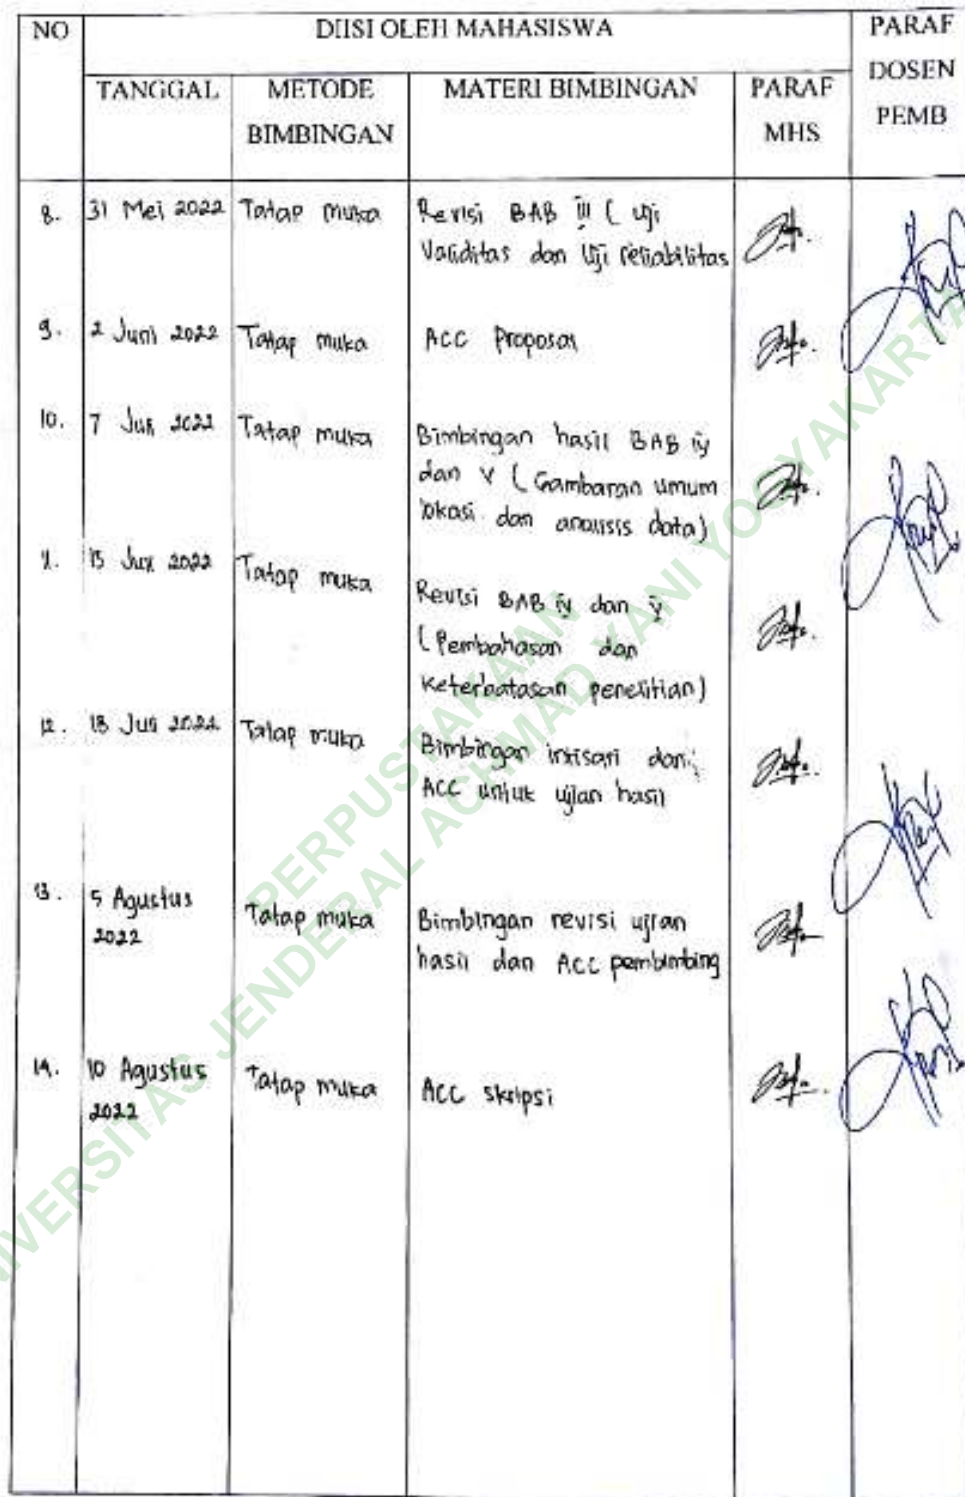 NO DIISI OLEH MAHASISWA PARAF
DOSEN
PEMB
TANGGAL METODE
BIMBINGAN MATERI BIMBINGAN PARAF
MHS
8. 31 Mei 2022 Tatap muka Revisi BAB III ( Uji
Validitas dan Uji reliabilitas
9. 2 Juni 2022 Tatap muka ACC Proposal
10. 7 2022 Tatap muka Bimbingan hasil BAB IV
dan V ( Gambaran umum
lokasi dan analisis data)
11. 2022 Tatap muka Revisi BAB IV dan V
( Pembahasan dan
Keterbatasan penelitian)
12. 18 2022 Tatap muka Bimbingan intisari dan
ACC untuk ujian hasil
13. 5 Agustus
2022 Tatap muka Bimbingan revisi ujian
hasil dan ACC pembimbing
14. 10 Agustus
2022 Tatap muka ACC skripsi
PERPUSTAKAAN
UNIVERSITAS JENDERAL ACHMAD YANI YOGYAKARTA